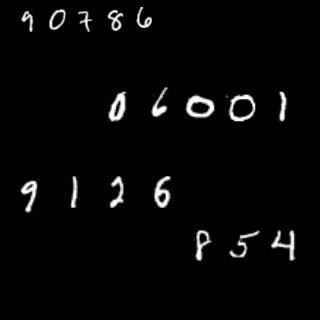 90786
06001
9126
854